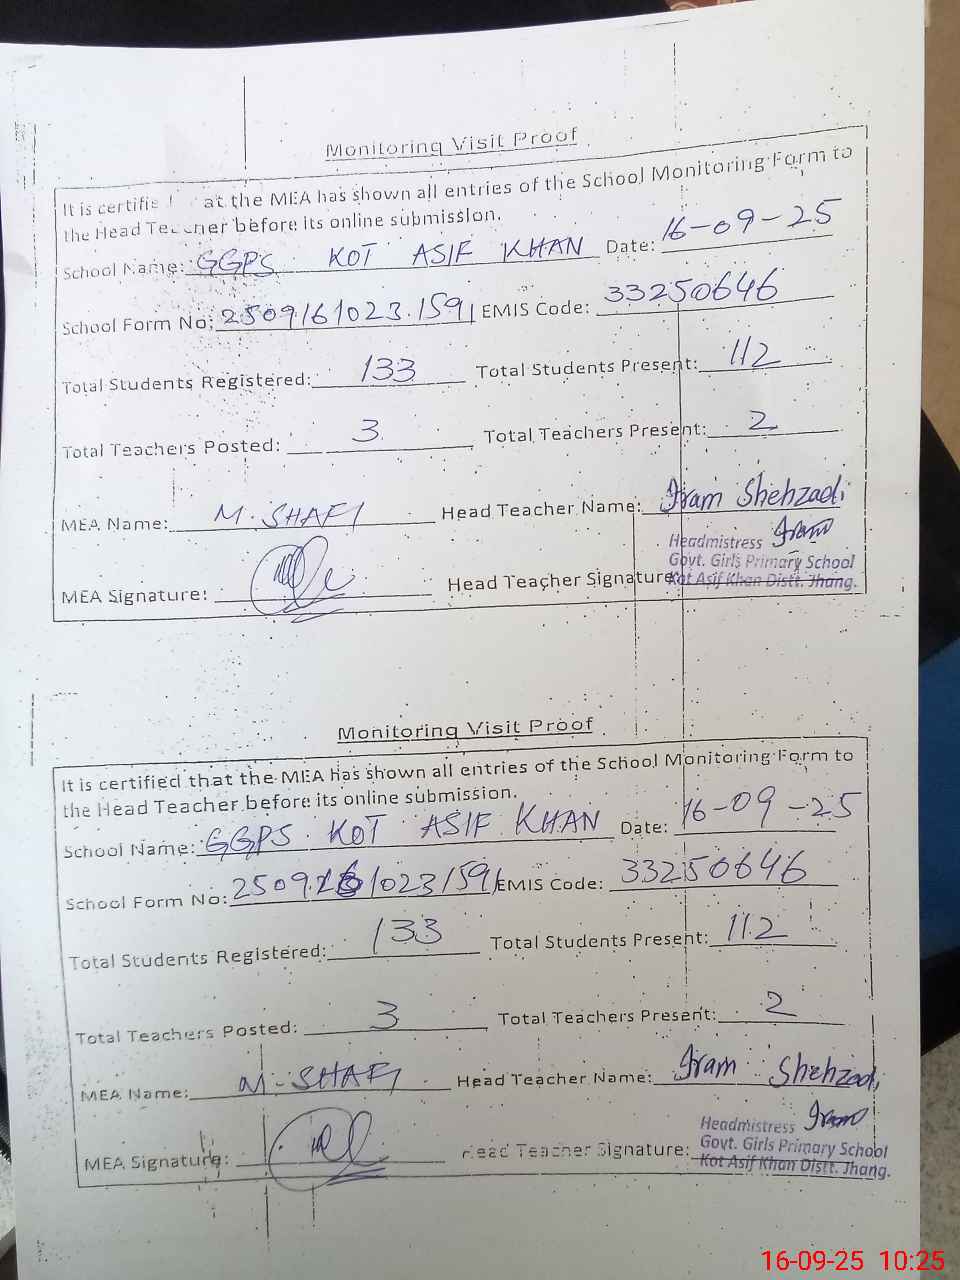 Monitoring Visit Proof
It is certifie at the MEA has shown all entries of the School Monitoring Form to
the Head Teacher before its online submission.
School Name: GGPS KOT ASIF KHAN Date: 16-09-25
School Form No: 25091610231591 EMIS Code: 33250646
Total Students Registered: 133 Total Students Present: 112
Total Teachers Posted: 3 Total Teachers Present: 2
MEA Name: M. SHAFI Head Teacher Name: Iram Shehzadi
Headmistress Iram
Govt. Girls Primary School
MEA Signature: Head Teacher Signature Kot Asif Khan Distt. Jhang.
Monitoring Visit Proof
It is certified that the MEA has shown all entries of the School Monitoring Form to
the Head Teacher before its online submission.
School Name: GGPS KOT ASIF KHAN Date: 16-09-25
School Form No: 25091610231591 EMIS Code: 33250646
Total Students Registered: 133 Total Students Present: 112
Total Teachers Posted: 3 Total Teachers Present: 2
MEA Name: M. SHAFI Head Teacher Name: Iram Shehzadi
Headmistress Iram
Govt. Girls Primary School
MEA Signature: Head Teacher Signature: Kot Asif Khan Distt. Jhang.
16-09-25 10:25